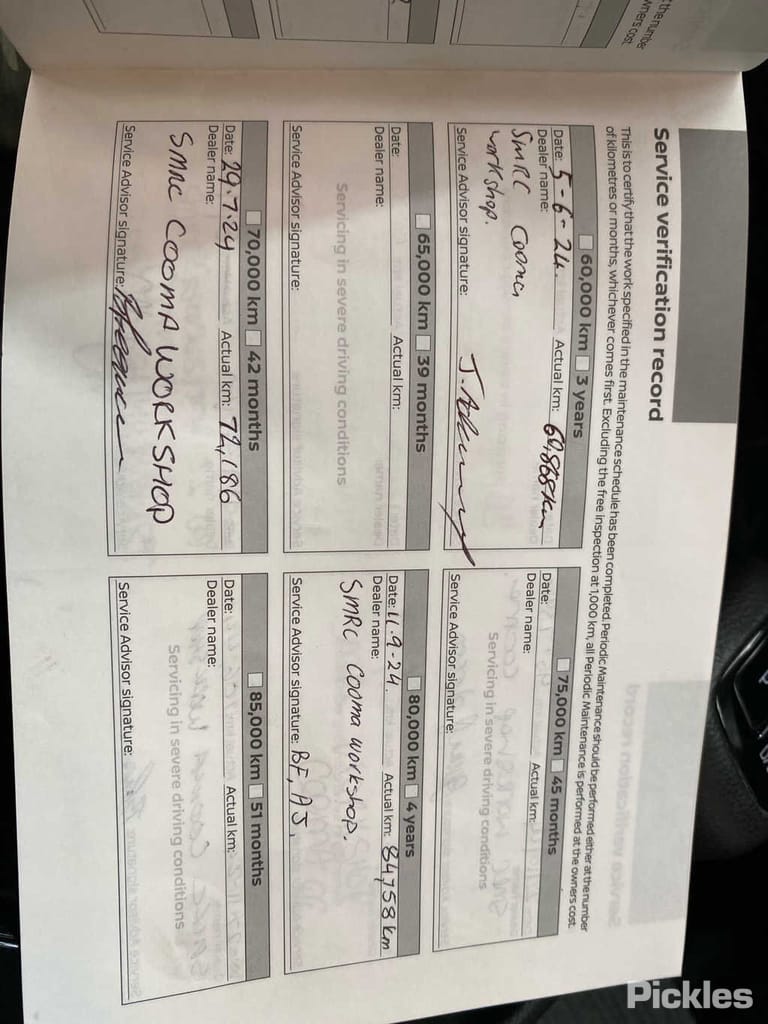 the number
wners cost
Service verification record
This is to certify that the work specified in the maintenance schedule has been completed. Periodic Maintenance should be performed either at the number
of kilometres or months, whichever comes first. Excluding the free inspection at 1,000 km, all Periodic Maintenance is performed at the owners cost.
60,000 km 3 years
Date: 5-6-24. Actual km:
Dealer name:
SMRC Cooma
workshop.
Service Advisor signature:
65,000 km 39 months
Date: Actual km:
Dealer name:
Servicing in severe driving conditions
Service Advisor signature:
70,000 km 42 months
Date: 29.7.24 Actual km: 72,186
Dealer name:
SMRC COOMA WORKSHOP
Service Advisor signature:
75,000 km 45 months
Date: Actual km:
Dealer name:
Servicing in severe driving conditions
Service Advisor signature:
80,000 km 4 years
Date: 11-9-24. Actual km: 84,758 km
Dealer name:
SMRC Cooma workshop.
Service Advisor signature: BF, AJ.
85,000 km 51 months
Date: Actual km:
Dealer name:
Servicing in severe driving conditions
Service Advisor signature:
Pickles